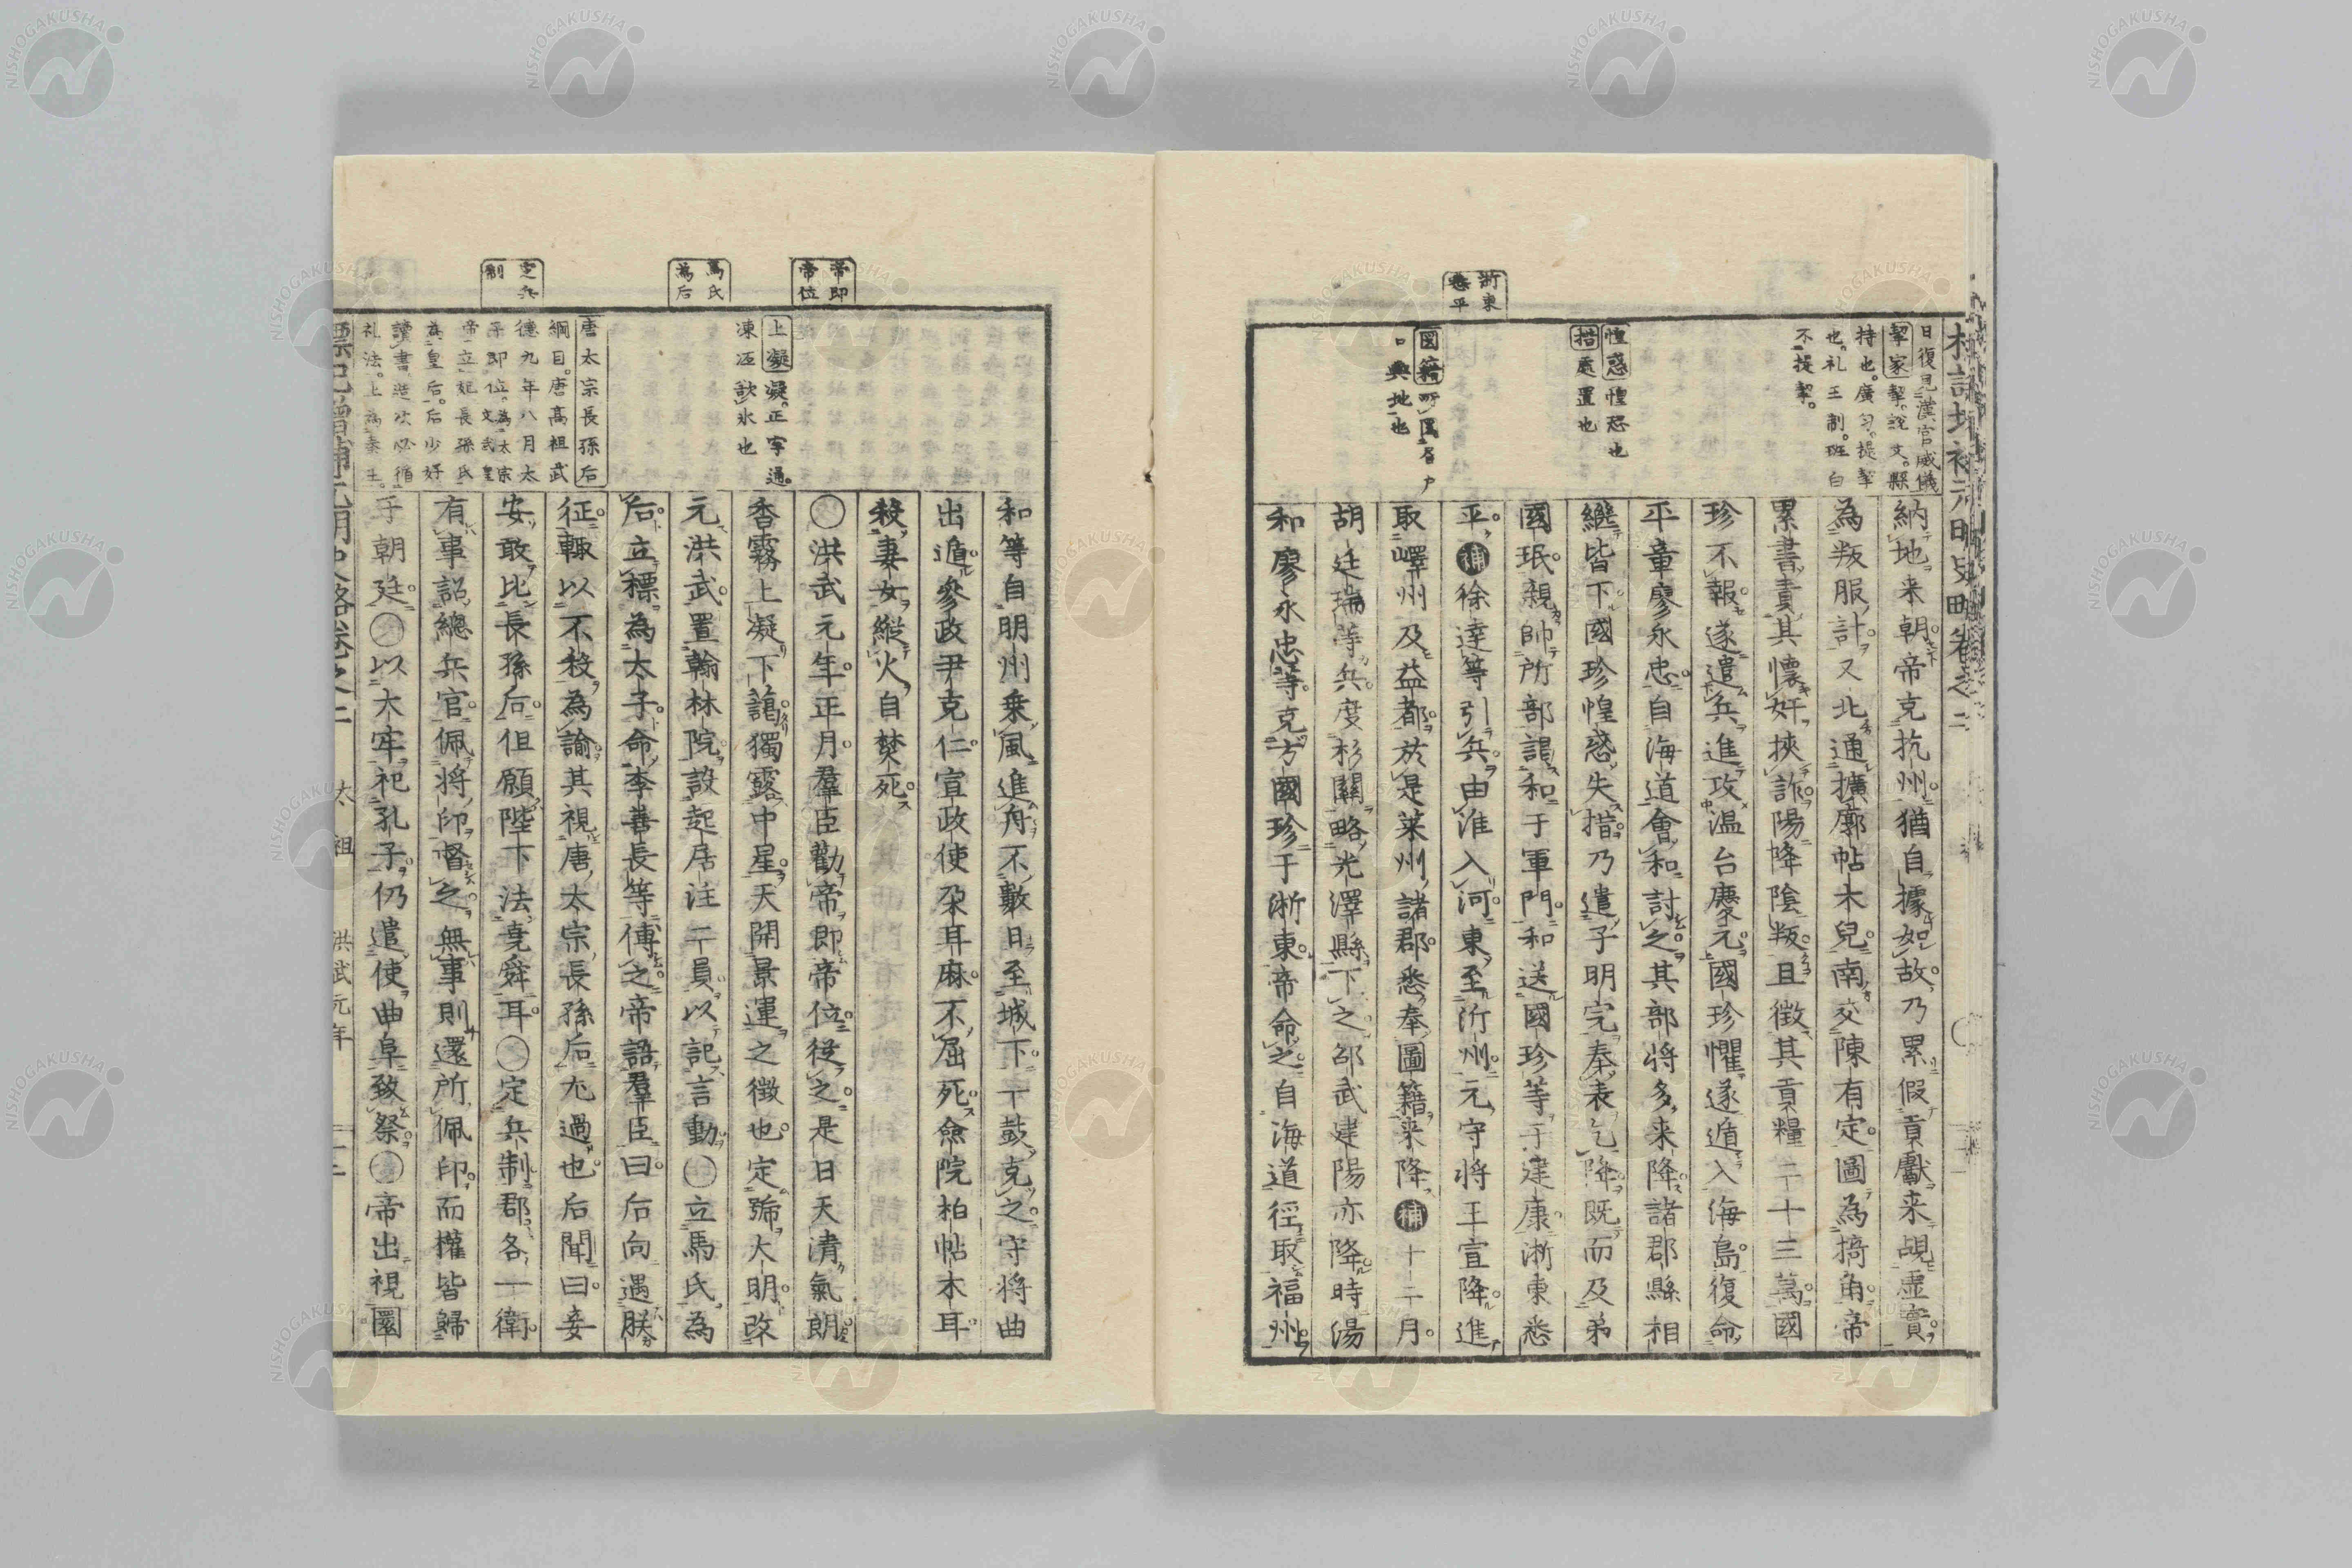 日復見漢官威儀
挈家挈説文縣
持也。廣匀。提挈
也。礼王制。班白
不提挈。
惶惑惶恐也
措處置也
浙東悉平
図籍
口輿地也
納地来朝帝克抗州猶自據如故乃累假貢獻来覘虚實
為叛服計又北通擴廓帖木兒南交陳有定圖為掎角帝
累書責其懐奸挾詐陽降陰叛且徴其貢糧二十三萬國
珍不報遂遣兵進攻温台慶元國珍懼遂遁入海島復命
平章廖永忠自海道會和討之其部将多来降諸郡縣相
継皆下國珍惶惑失措乃遣子明完奉表乞降既而及弟
國珉親帥所部謁和于軍門和送國珍等于建康浙東悉
平補徐達等引兵由淮入河東至沂州元守将王宣降進
取嶧州及益都於是莱州諸郡悉奉圖籍来降補十二月
胡廷瑞等兵度杉關略光澤縣下之邵武建陽亦降時湯
和廖永忠等克方國珍于浙東帝命之自海道徑取福州
帝即帝位
馬氏為后
定兵制
上凝凝。正字通。
凍冱歛氷也
唐太宗長孫后
綱目。唐高祖武
德九年八月太
子即位。為太宗文武皇
帝立妃長孫氏
為皇后。后少好
讀書造次必循
礼法。上為秦王。
和等自明州乗風進舟不數日至城下一鼓克之守将曲
出遁參政尹克仁宣政使朶耳麻不屈死僉院柏帖木耳
殺妻女縱火自焚死
〇洪武元年正月羣臣勸帝即帝位從之是日天清氣朗
香霧上凝下藹獨露中星天開景運之徴也定號大明改
元洪武置翰林院設起居注二員以記言動〇立馬氏為
后立標為太子命李善長等傅之帝語羣臣曰后向遇朕
征輙以不殺為諭其視唐太宗長孫后尤過也后聞曰妾
安敢比長孫后但願陛下法堯舜耳〇定兵制郡各一衛
有事詔總兵官佩将印督之無事則還所佩印而權皆歸
于朝廷〇以大牢祀孔子仍遣使曲阜致祭〇帝出視圜
太祖 洪武元年